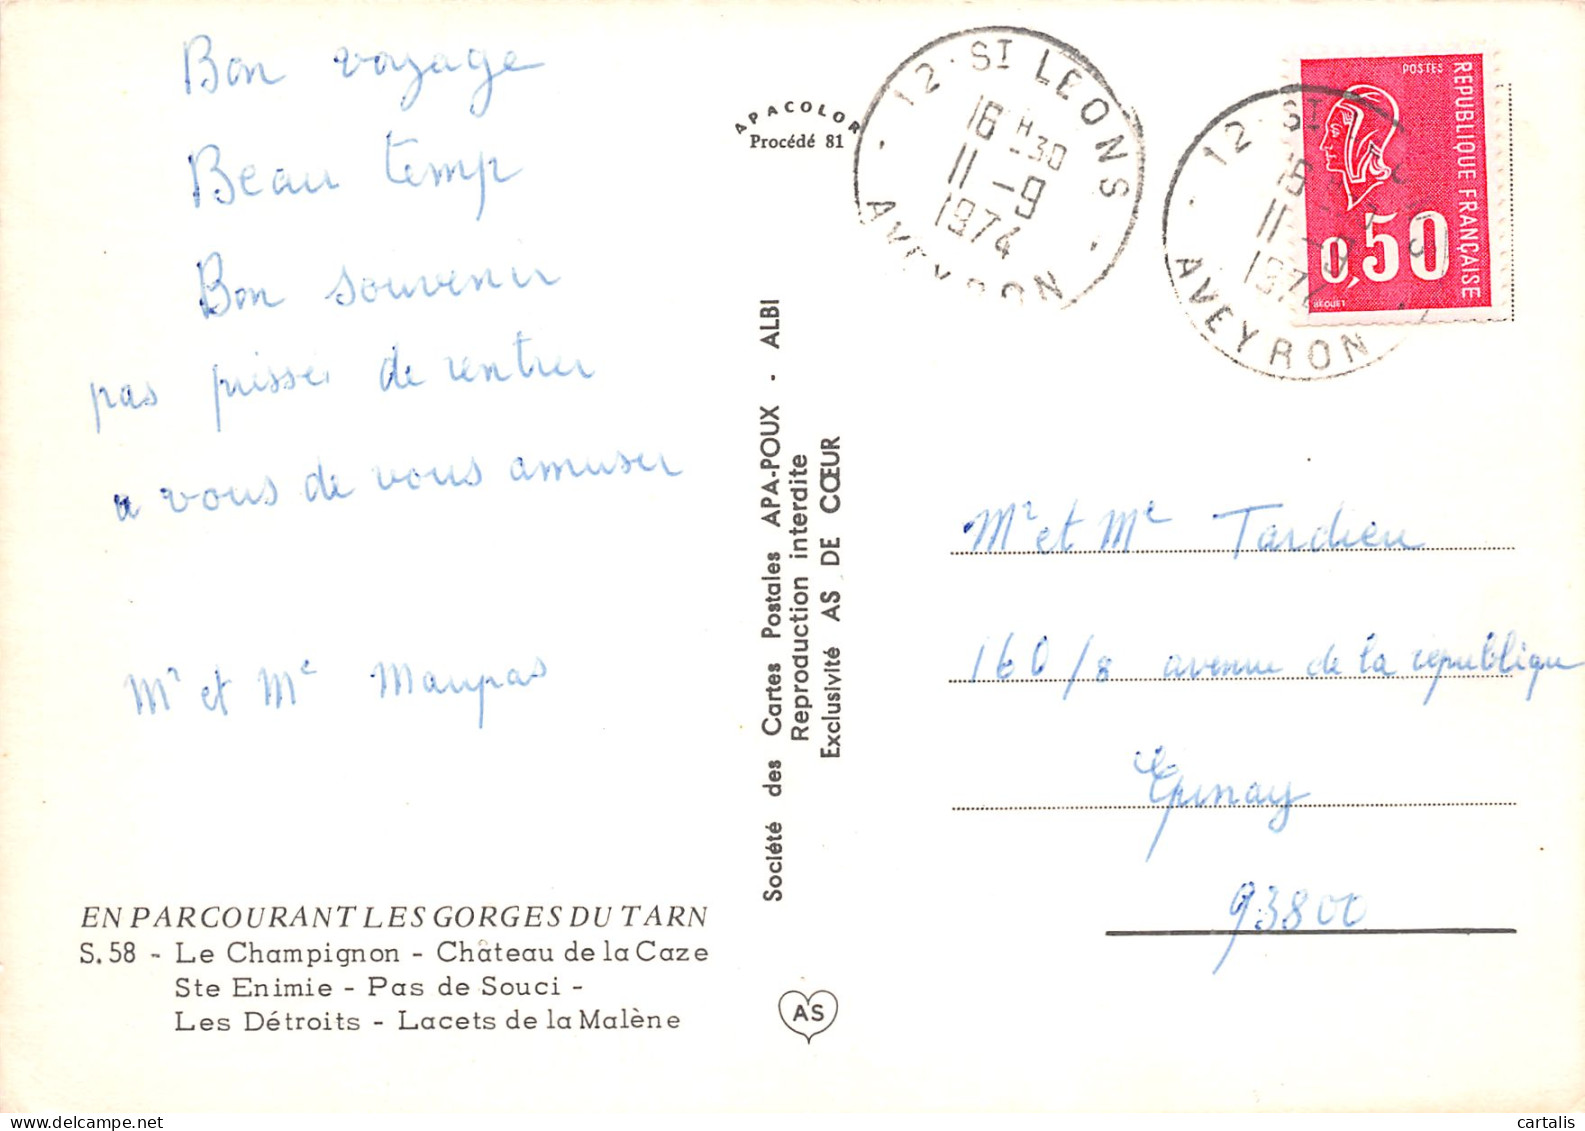 Bon voyage
Beau temp
Bon souvenir
pas pressé de rentrer
a vous de vous amuser
Mr et Me Maupas
EN PARCOURANT LES GORGES DU TARN
S. 58 - Le Champignon - Château de la Caze
Ste Enimie - Pas de Souci -
Les Détroits - Lacets de la Malène
APACOLOR
Procédé 81
Société des Cartes Postales APA-POUX - ALBI
Reproduction interdite
Exclusivité AS DE CŒUR
AS
12 - ST LEONS
16 H 30
11 - 9
1974
AVEYRON
12 - ST
11 - 9
1974
AVEYRON
POSTES
REPUBLIQUE FRANÇAISE
0,50
BEQUET
Mr et Me Tardieu
160/8 avenue de la republique
Epinay
93800
cartalis